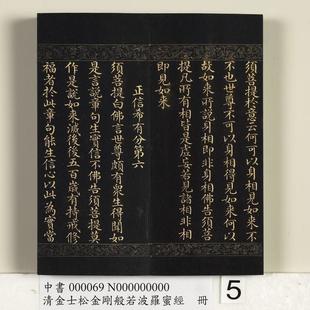 須菩提於意云何可以身相見如來不
不也世尊不可以身相得見如來何以
故如來所說身相即非身相佛告須菩
提凡所有相皆是虛妄若見諸相非相
即見如來
正信希有分第六
須菩提白佛言世尊頗有眾生得聞如
是言說章句生實信不佛告須菩提莫
作是說如來滅後後五百歲有持戒修
福者於此章句能生信心以此為實當
5
中書 000069 N000000000
清金士松金剛般若波羅蜜經 冊